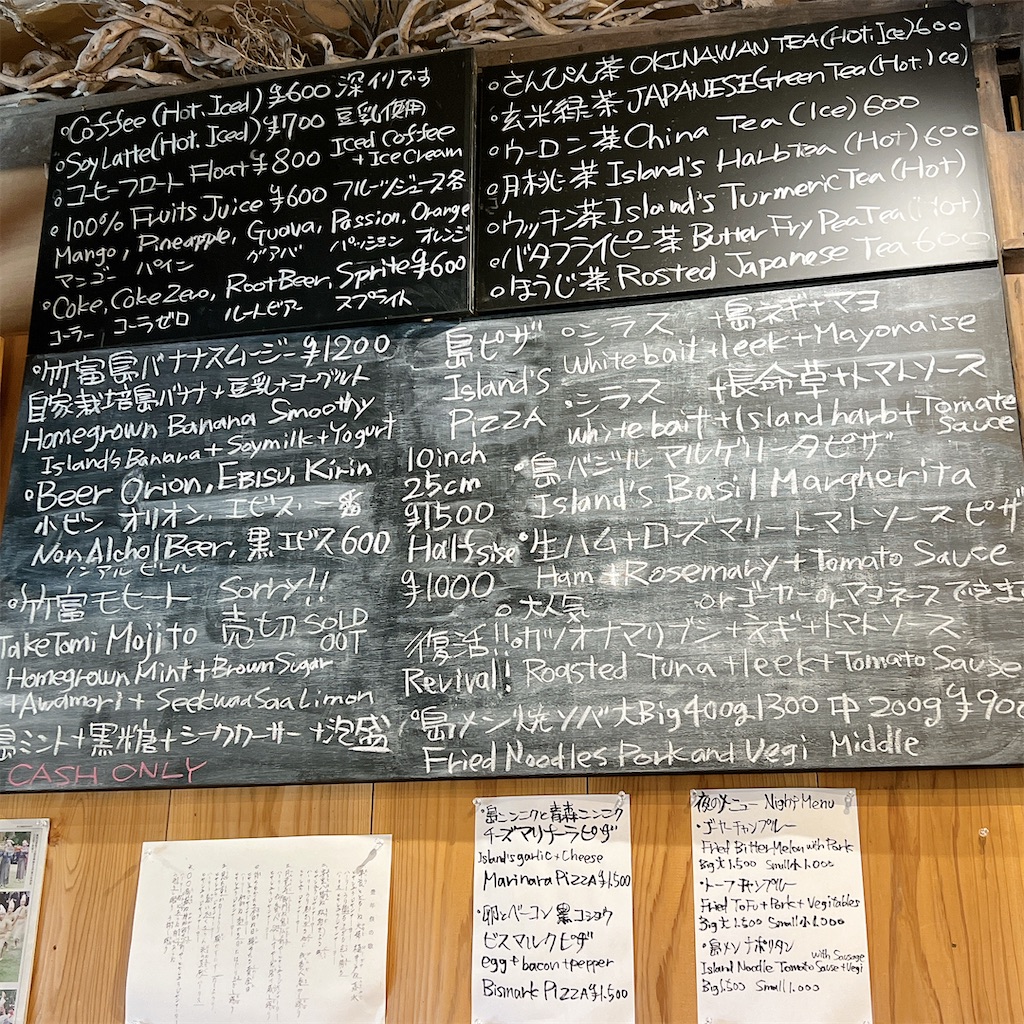 °Coffee (Hot, Iced) ¥600 深イリです
°Soy Latte (Hot. Iced) ¥700 豆乳使用
°コーヒーフロート Float ¥800 Iced Coffee + Ice Cream
°100% Fruits Juice ¥600 フルーツジュース各
Mango, Pineapple, Guava, Passion, Orange
マンゴー パイン グアバ パッション オレンジ
°Coke, Coke Zero, Root Beer, Sprite ¥600
コーラー コーラゼロ ルートビアー スプライト
°さんぴん茶 OKINAWAN TEA (Hot. Ice) 600
°玄米緑茶 JAPANESE Green Tea (Hot. Ice)
°ウーロン茶 China Tea (Ice) 600
°月桃茶 Island's Harb tea (Hot) 600
°ウッチン茶 Island's Turmeric Tea (Hot)
°バタフライピー茶 Butter Fry Pea Tea (Hot)
°ほうじ茶 Rosted Japanese Tea 600
°竹富島バナナスムージー ¥1200
自家栽培島バナナ+豆乳+ヨーグルト
Homegrown Banana Smoothy
Island's Banana + Soymilk + Yogurt
°Beer Orion, EBISU, Kirin
小ビン オリオン, エビス, 一番
Non Alchol Beer, 黒エビス 600
ノンアルビール
°竹富モヒート Sorry!!
TakeTomi Mojito 売切 SOLD OOT
Homegrown Mint + Brown Sugar
+ Awamori + SeekwaaSaa Limon
島ミント+黒糖+シークワーサー+泡盛
CASH ONLY
島ピザ
Island's
PIZZA
10inch
25cm
¥1500
Half sise
¥1000
°シラス +島ネギ+マヨ
White bait + leek + Mayonaise
°シラス +長命草+トマトソース
White bait + Island harb + Tomate sauce
°島バジルマルゲリータピザ
Island's Basil Margherita
°生ハム+ローズマリートマトソースピザ
Ham + Rosemary + Tomato Sauce
°大人気 orゴーヤーorマヨネーズできま
復活!!°カツオナマリブシ+ネギ+トマトソース
Revival! Roasted Tuna + leek + Tomato Sause
°島メン焼ソバ 大Big 400g 1300 中 200g ¥900
Fried Noodles Pork and Vegi Middle
・島ニンニクと青森ニンニク
チーズマリナーラピザ
Island's garlic + Cheese
Marinara PIZZA ¥1.500
・卵とベーコン黒コショウ
ビスマルクピザ
egg + bacon + pepper
Bismark PIZZA ¥1.500
夜のメニュー Night Menu
・ゴーヤーチャンプルー
Fried Bitter Melon with Pork
Big大 1.500 Small小 1.000
・トーフチャンプルー
Fried ToFu + Pork + Vegitables
Big大 1.500 Small小 1.000
・島メンナポリタン
with Sausage
Island Noodle Tomato Sause + Vegi
Big 1.500 Small 1.000